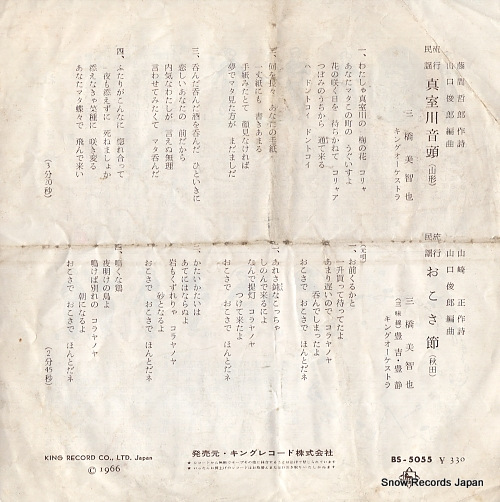 流行
民謡 真室川音頭 (山形)
藤間哲郎作詩
山口俊郎編曲
三橋美智也
キングオーケストラ
一、わたしゃ真室川の 梅の花 コリャ
あなたマタこの町の うぐいすよ
花の咲く日を 待ちかねて コリャア
つぼみのうちから 通て来る
ハ ドントコイ ドントコイ
二、何を長々 あなたの手紙
一丈紙にも 書きあまる
手紙みたとて 顔見なければ
夢でマタ見た方が まだましだ
三、呑んだ呑んだ酒を呑んだ ひといきに
恋しいあなたの 前だから
内気なわたしが 言えぬ無理
言わせてみたくて マタ呑んだ
四、ふたりがこんなに 惚れ合って
一夜も添えずに 死ねましょか
添えなきゃ菜種に 咲き変る
あなたマタ蝶々で 飛んで来い
(3分20秒)
流行
民謡 おこさ節 (秋田)
山崎正作詩
山口俊郎編曲
三橋美智也
(三味線) 豊吉・豊静
キングオーケストラ
一、お前くるかと
一升買って待ってたよ
あまり遅いので コラヤノヤ
呑んでしまったよ
おこさで おこさで ほんとだネ
二、あれさ純なこっちゃ
しのんで来るによ
なんで提灯 コラヤノヤ
つけて来たよ
おこさで おこさで ほんとだネ
三、かたいかたいは
あてにはならぬよ
岩もくずれりゃ コラヤノヤ
砂となるよ
おこさで おこさで ほんとだネ
四、鳴くな鶏
夜明けの鳥よ
鳴けば別れの コラヤノヤ
朝になるよ
おこさで おこさで ほんとだネ
(2分45秒)
KING RECORD CO., LTD. Japan
© 1966
発売元・キングレコード株式会社
BS-5055 ¥330
Snow Records Japan